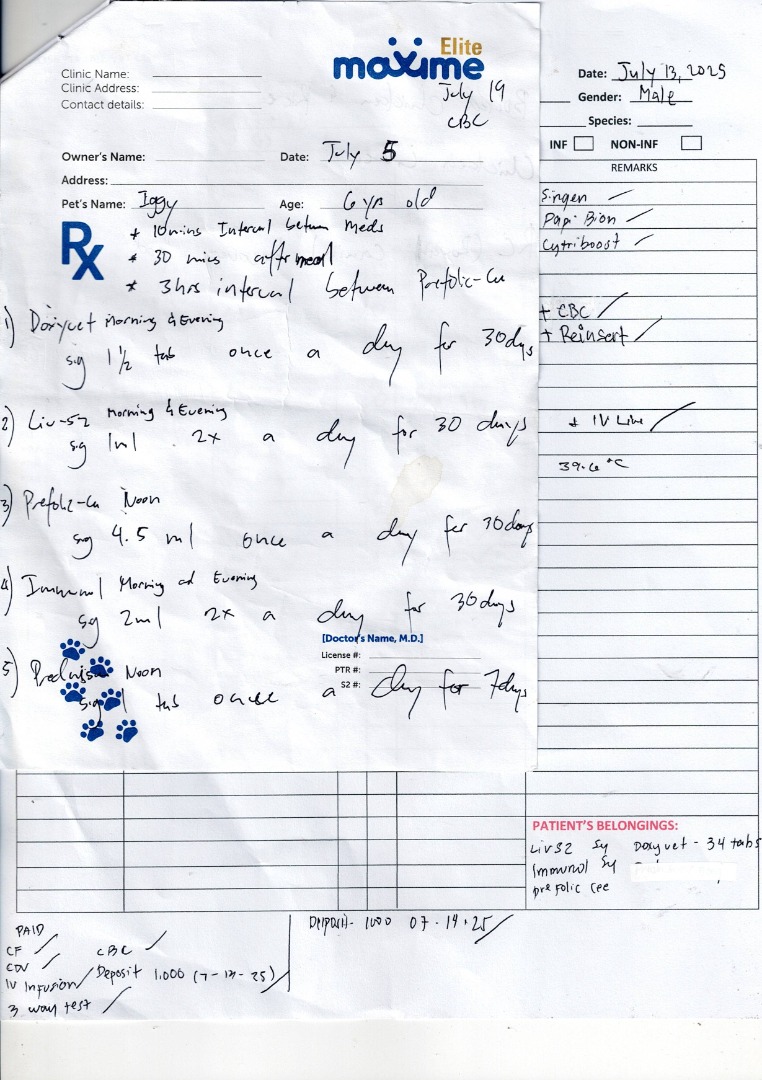 Elite
maxime
Clinic Name:
Clinic Address:
Contact details:
July 19
CBC
Owner's Name: Date: July 5
Address:
Pet's Name: Iggy Age: 6 yrs old
Rx
* 10 mins Interval between meds
* 30 mins after meal
* 3hrs interval between Prefolic-Cee
1) Doxyvet Morning & Evening
sig 1 1/2 tab once a day for 30days
2) Liv-52 Morning & Evening
sig 1ml 2x a day for 30 days
3) Prefolic-Cee Noon
sig 4.5 ml once a day for 30days
4) Immunol Morning and Evening
sig 2ml 2x a day for 30days
[Doctor's Name, M.D.]
License #:
PTR #:
S2 #:
5) Prednisone Noon
sig 1 tab once a day for 7days
Date: July 13, 2025
Gender: Male
Species:
INF NON-INF
REMARKS
Singen
Papi Bion
Cytriboost
+ CBC
+ Reinsert
+ IV Line
39.6 °C
PATIENT'S BELONGINGS:
Liv52 Sy Doxyvet - 34 tabs
Immunol Sy
prefolic cee
PAID
CF
CBC
CDV
IV Infusion
Deposit 1,000
3 way test
Deposit - 1000 07-14-25